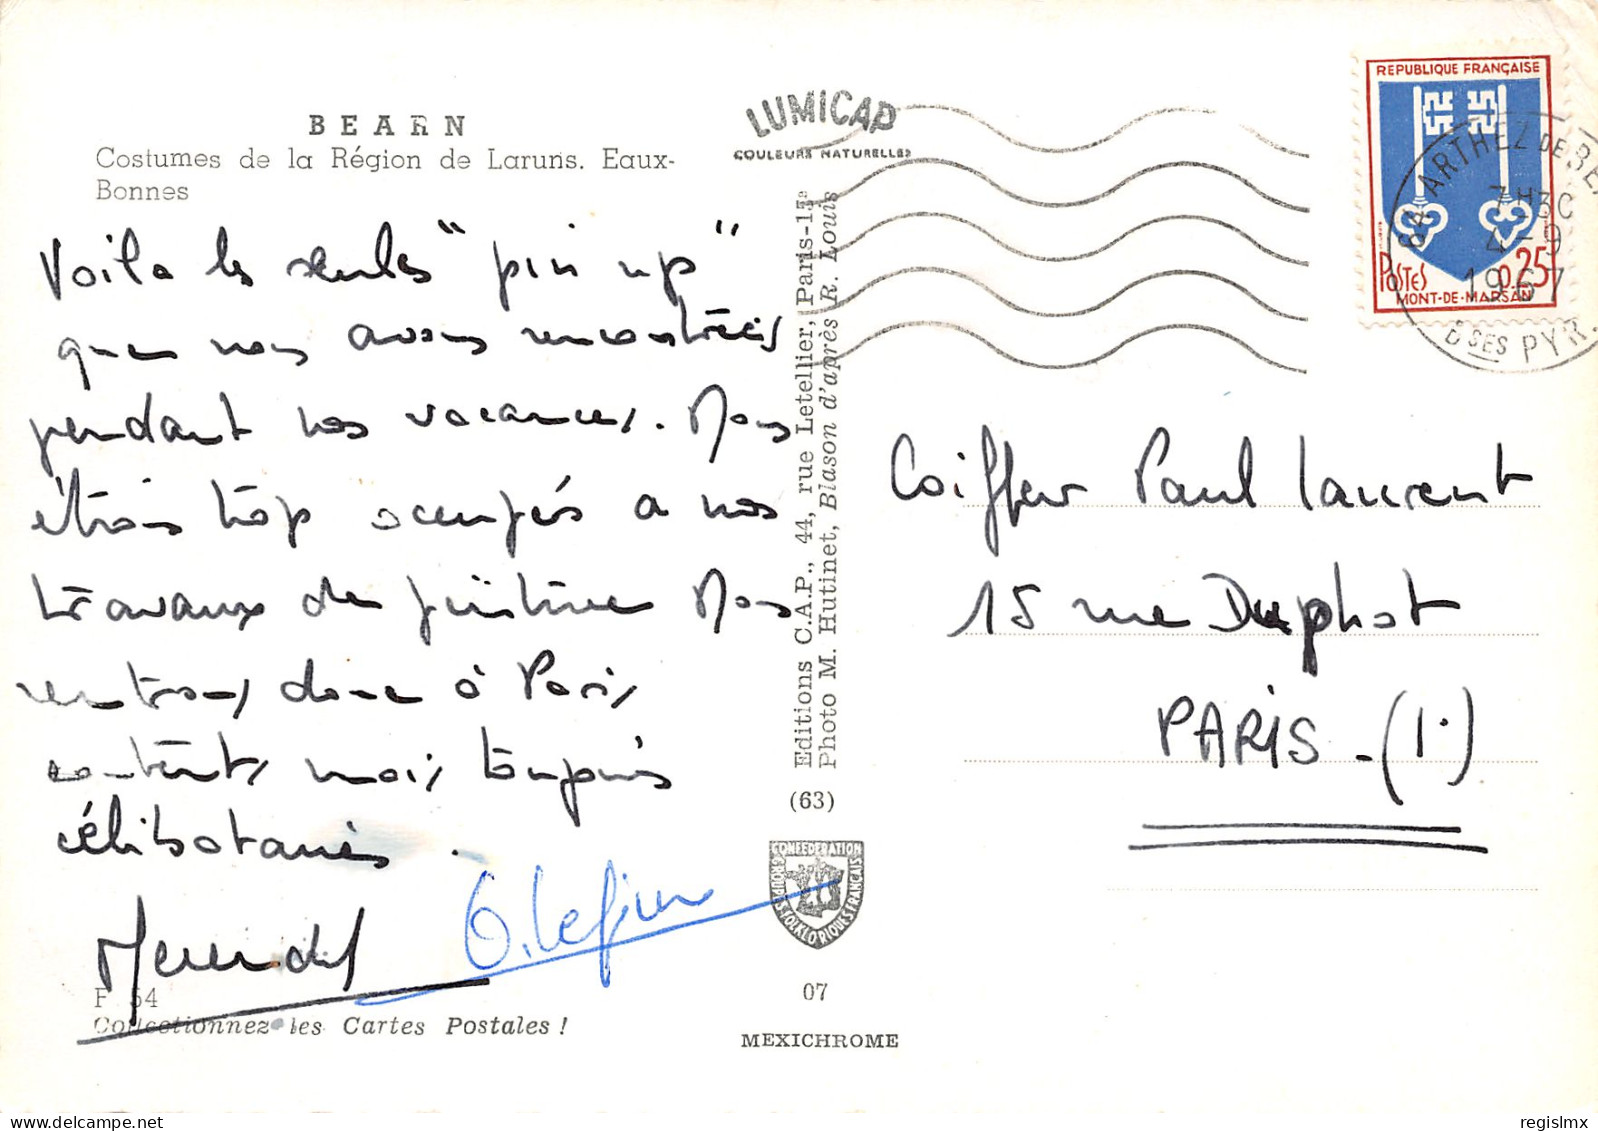 BEARN
Costumes de la Région de Laruns. Eaux-
Bonnes
Voila les seules "pin up"
que nous avons rencontrées
pendant nos vacances. Nous
étions trop occupés a nos
travaux de peinture Nous
rentrons donc à Paris
contents mais toujours
célibataires.
F 54
Collectionnez les Cartes Postales !
LUMICAP
COULEURS NATURELLES
Editions C.A.P., 44, rue Letellier, Paris-15e
Photo M. Hutinet, Blason d'après R. Louis
(63)
CONFEDERATION
GROUPES FOLKLORIQUES FRANÇAIS
07
MEXICHROME
REPUBLIQUE FRANÇAISE
POSTES
0,25
MONT-DE-MARSAN
64 ARTHEZ DE BE
7H30
4-9
1967
BSES PYR.
Coiffeur Paul Laurent
15 rue Duphot
PARIS - (1.)
regislmx